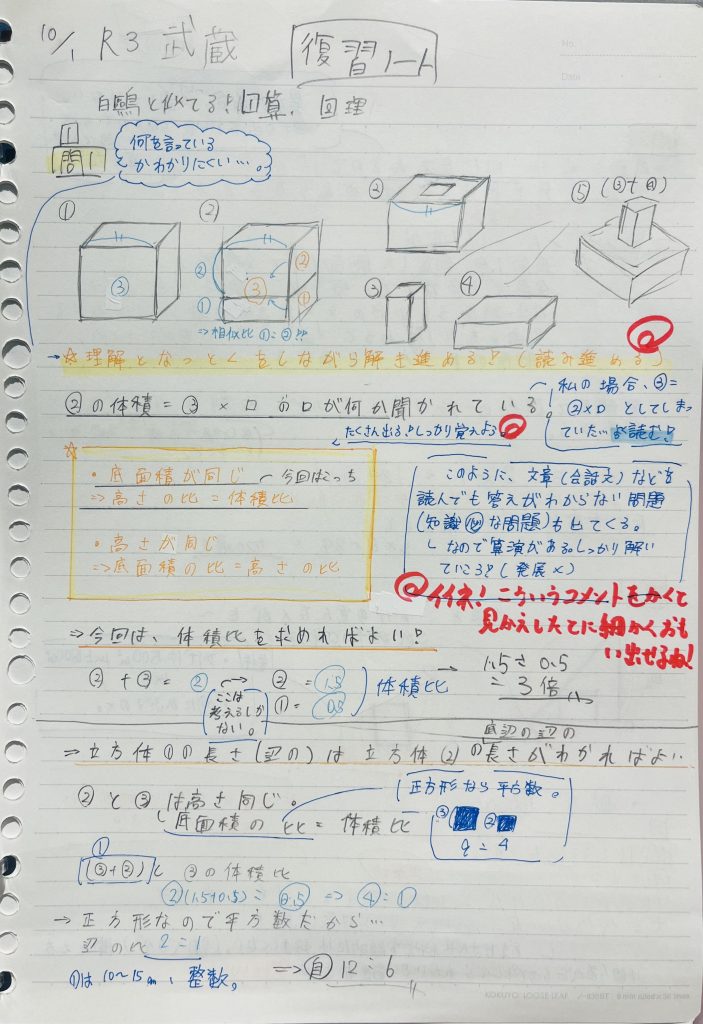 10/1 R3 武蔵 復習ノート
No.
Date
白鷗と似てる!図算、図理
1
問1
何を言っている
かわかりにくい…。
① ② ③ ⑤(③+④)
③
② ② ③ ①
①
⇒相似比
③ ④
→☆理解となっとくをしながら解き進める!(読み進める)
②の体積=③×□の□が何か聞かれている。
私の場合、③=
②×□としてしまっ
ていた…よく読む!
たくさん出る!しっかり覚えよう
☆
・底面積が同じ 今回はこっち
⇒高さの比=体積比
・高さが同じ
⇒底面積の比=高さの比
このように、文章(会話文)などを
読んでも答えがわからない問題
(知識な問題)も出てくる。
なので算演がある。しっかり解い
ていこう!(発展×)
イイネ!こういうコメントをかくと
見かえしたてに細かくおも
い出せるね!
⇒今回は、体積比を求めればよい!
②+③=② ②=1.5
①=0.5
体積比
ここは
考えるしか
ない。
→ 1.5÷0.5
=3倍
⇒立方体①の長さ(辺の)は立方体(2)の底辺の辺の長さがわかればよい
②と③は高さ同じ。
底面積の比=体積比
正方形なら平方数。
③ ②
9:4
①
(③+②)と③の体積比
②(1.5+0.5):0.5 ⇒ ④:①
→正方形なので平方数だから…
辺の比 2:1
①は10~15cm、整数。
⇒自 12:6